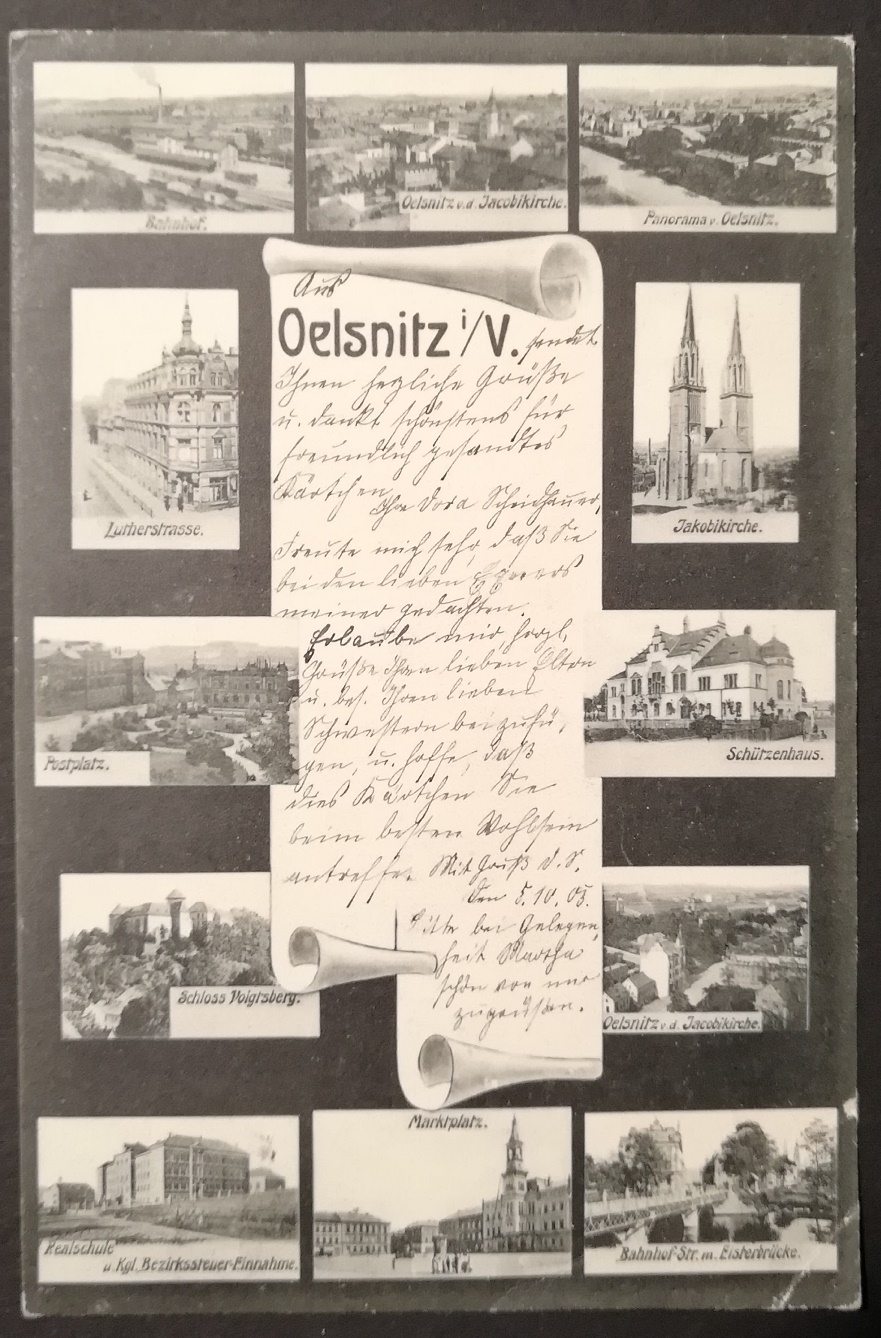 Bahnhof.
Oelsnitz v. d. Jacobikirche.
Panorama v. Oelsnitz.
Aus
Oelsnitz i/V. sendet
Ihnen herzliche Grüße
u. dankt schönstens für
freundlich gesandtes
Kärtchen
Ihre Dora Scheidhauer,
Freute mich sehr, daß Sie
bei den lieben
meiner gedachten.
Erlaube mir, herzl.
Grüße Ihren lieben Eltern
u. bes. Ihren lieben
Schwestern beizufü,
gen, u. hoffe, daß
dies Kärtchen Sie
beim besten Wohlsein
antreffe. Mit Gruß D. S.
den 5.10.05.
Bitte bei Gelegen,
heit Martha
schön von mir
zu grüßen.
Lutherstrasse.
Jakobikirche.
Postplatz.
Schützenhaus.
Schloss Voigtsberg.
Oelsnitz v. d. Jacobikirche.
Realschule
u. Kgl. Bezirkssteuer-Einnahme.
Marktplatz.
Bahnhof-Str. m. Elsterbrücke.